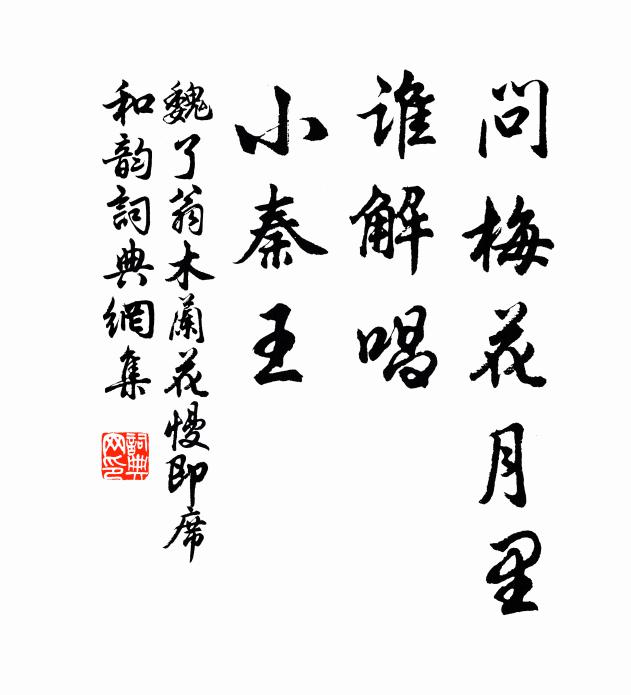 问梅花月里
谁解唱
小秦王
魏了翁木蘭花慢即席
和韵詞典網集
詞典
网印